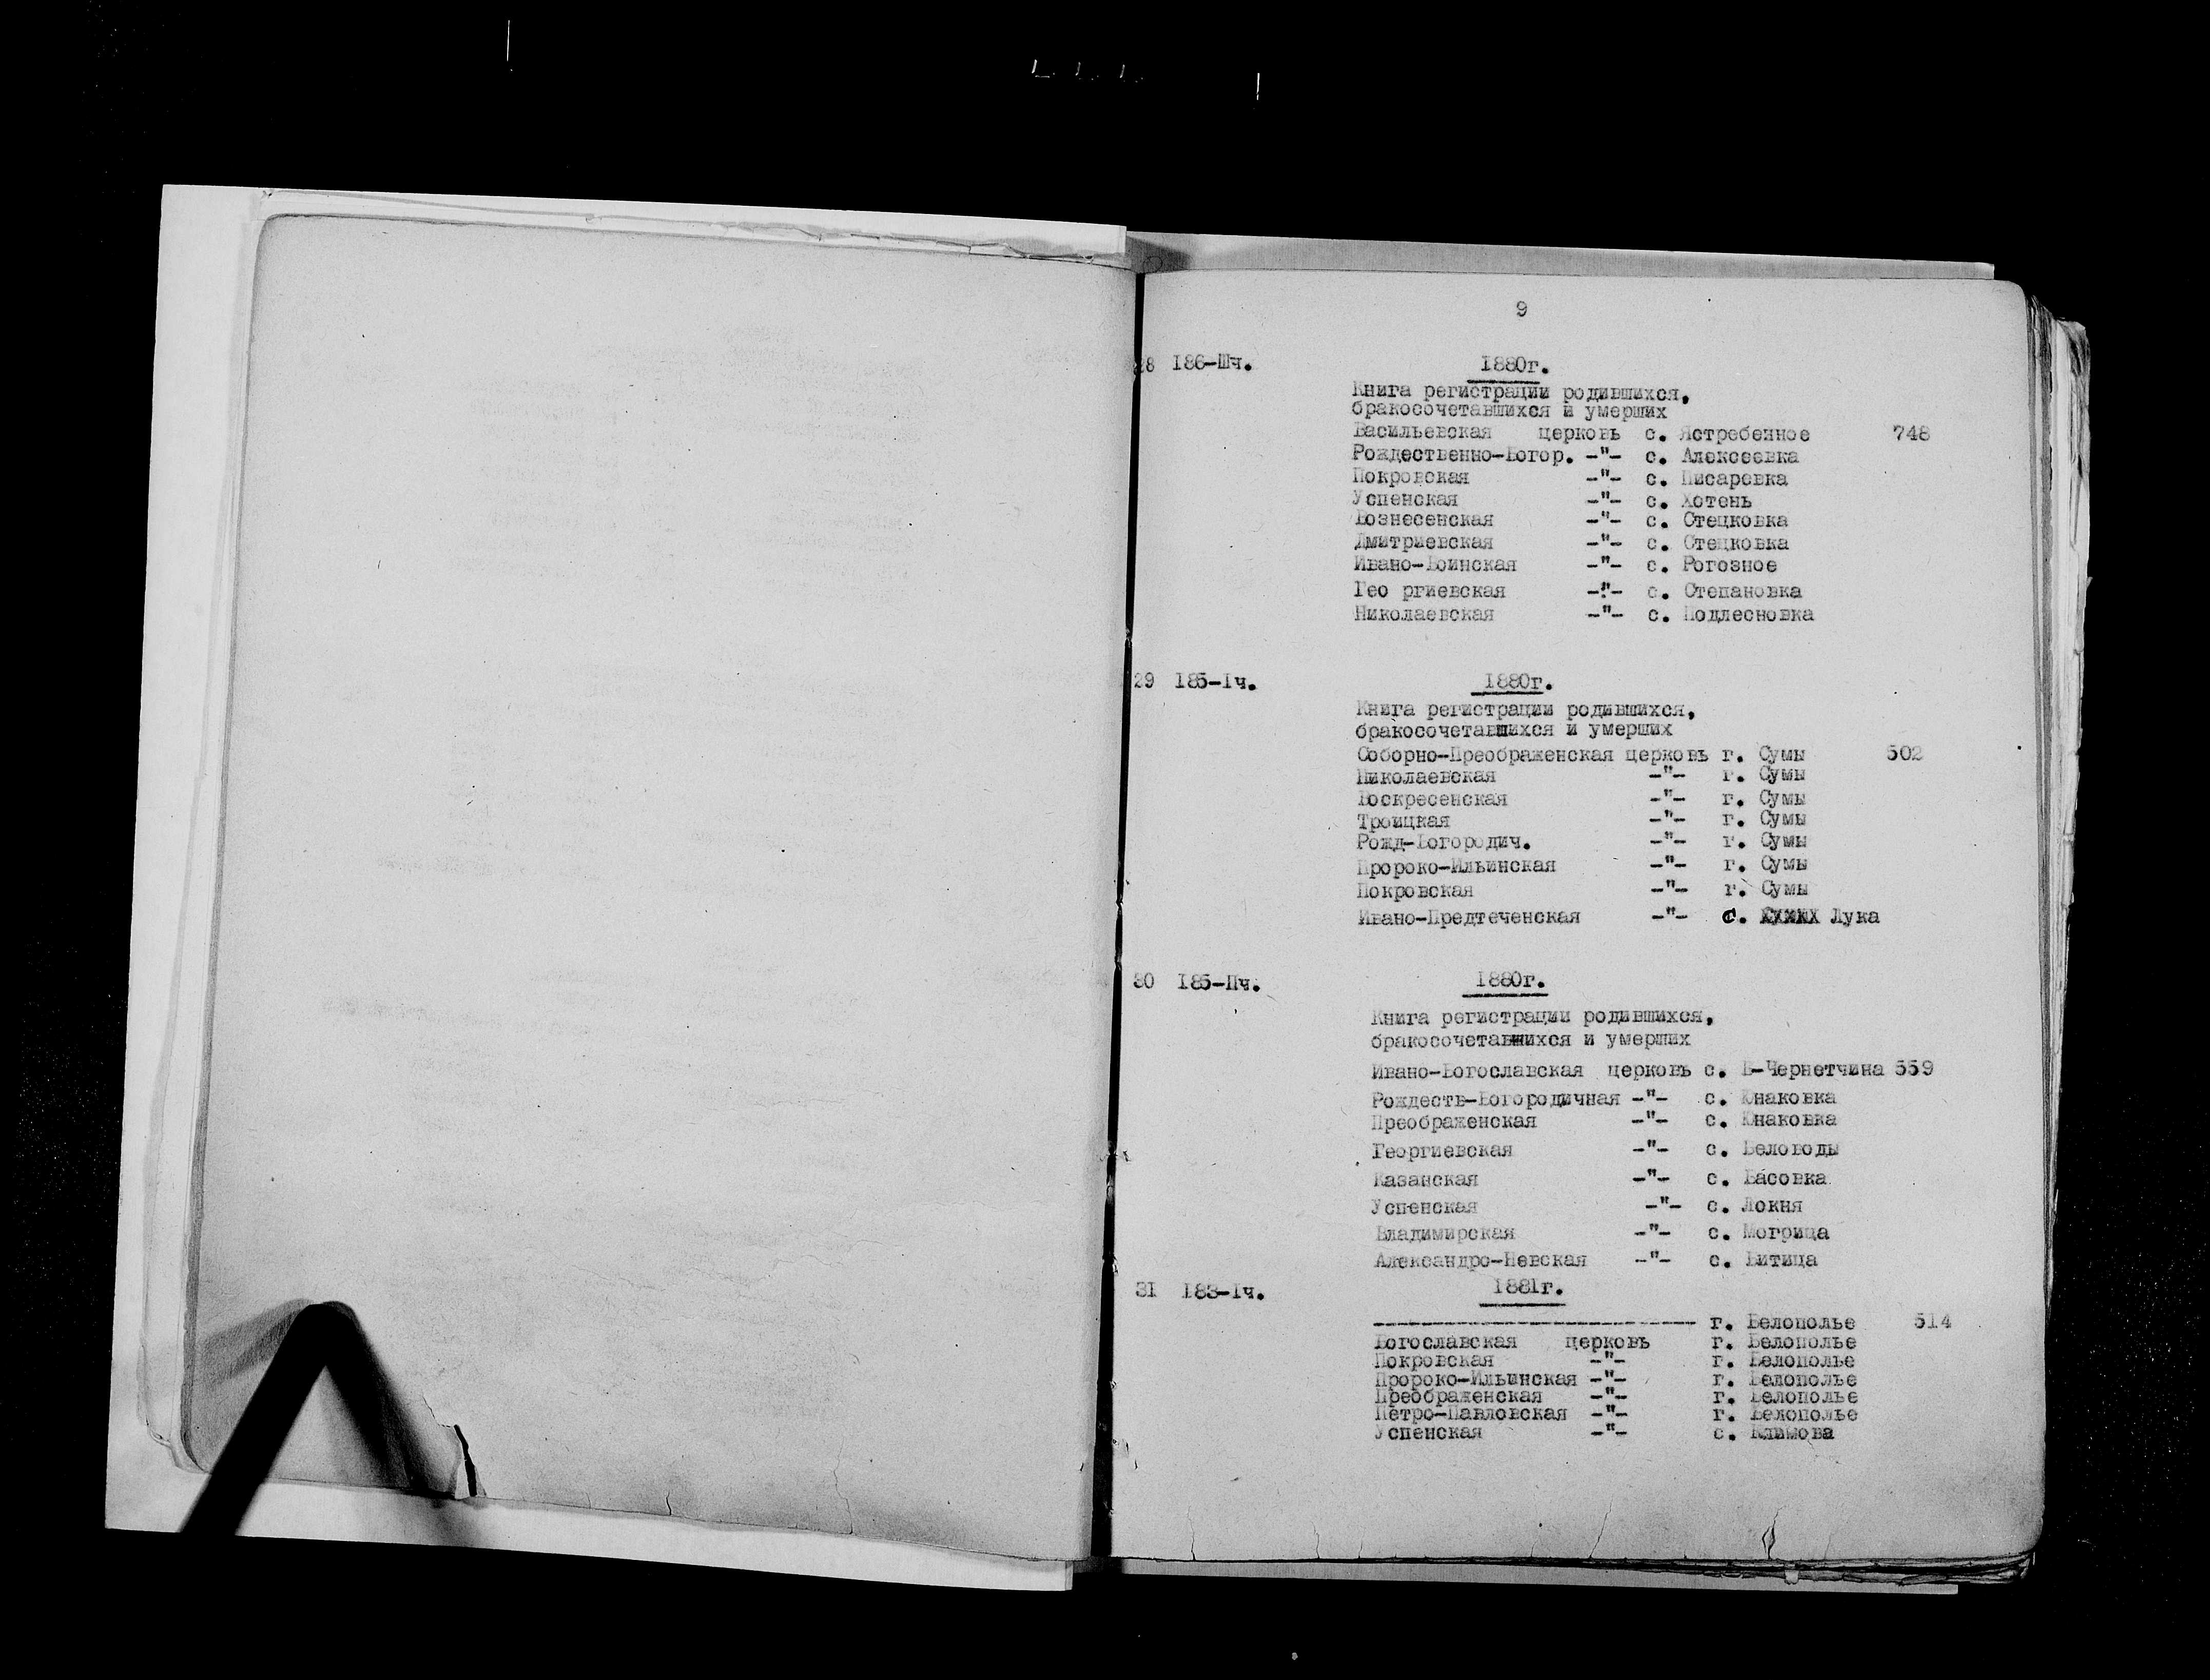 9
28 186-Шч. 1880г.
Книга регистрации родившихся,
бракосочетавшихся и умерших
Васильевская церковь с. Ястребенное 748
Рождественно-Богор. -"- с. Алексеевка
Покровская -"- с. Писаревка
Успенская -"- с. Хотень
Вознесенская -"- с. Стецковка
Дмитриевская -"- с. Стецковка
Ивано-Воинская -"- с. Рогозное
Гео ргиевская -"- с. Степановка
Николаевская -"- с. Подлесновка
29 185-Iч. 1880г.
Книга регистрации родившихся,
бракосочетавшихся и умерших
Соборно-Преображенская церковь г. Сумы 502
Николаевская -"- г. Сумы
Воскресенская -"- г. Сумы
Троицкая -"- г. Сумы
Рожд-Богородич. -"- г. Сумы
Пророко-Ильинская -"- г. Сумы
Покровская -"- г. Сумы
Ивано-Предтеченская -"- с. Лука
30 185-Пч. 1880г.
Книга регистрации родившихся,
бракосочетавшихся и умерших
Ивано-Богославская церковь с. В-Чернетчина 559
Рождеств-Богородичная -"- с. Юнаковка
Преображенская -"- с. Юнаковка
Георгиевская -"- с. Беловоды
Казанская -"- с. Басовка
Успенская -"- с. Локня
Владимирская -"- с. Могрица
Александро-Невская -"- с. Битица
31 183-Iч. 1881г.
------------------------- г. Белополье 514
Богославская церковь г. Белополье
Покровская -"- г. Белополье
Пророко-Ильинская -"- г. Белополье
Преображенская -"- г. Белополье
Петро-Павловская -"- г. Белополье
Успенская -"- с. Климова